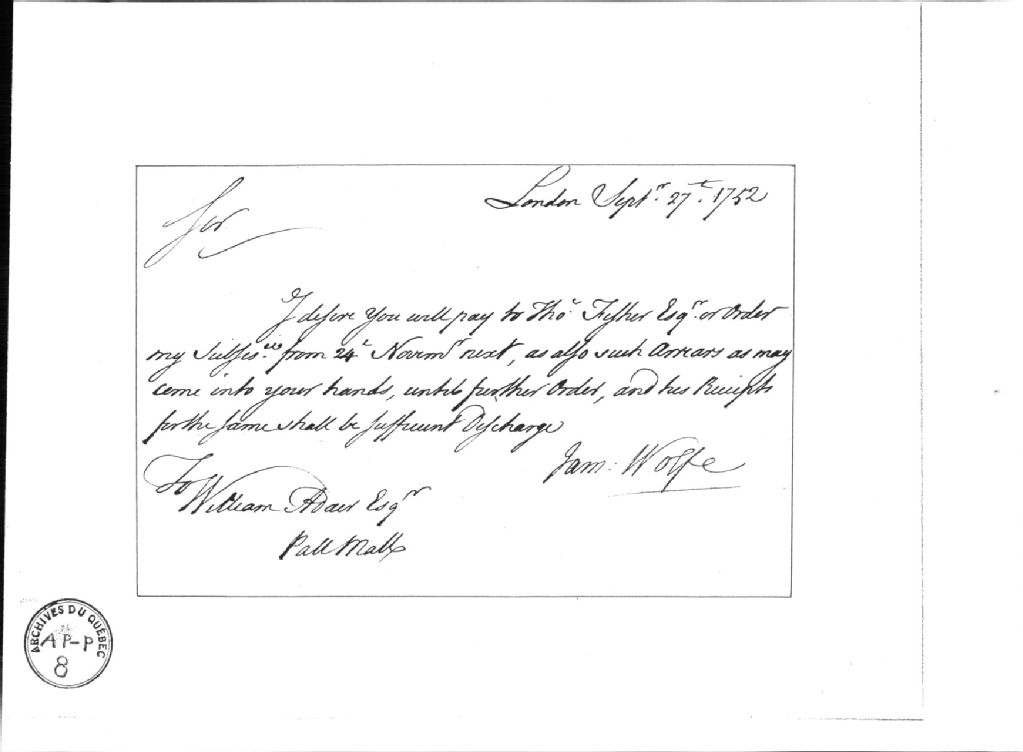 London Sept.r 27.t 1752
Sir
I desire You will pay to Tho.s Fisher Esq.r or Order
my Subsis.ce from 24.t Novem.r next, as also such Arrears as may
come into your hands, until further Order, and his Receipts
for the same shall be sufficient Discharge
Jam: Wolfe
To
William Adair Esq.r
Pall Mall
ARCHIVES DU QUÉBEC
AP-P
8